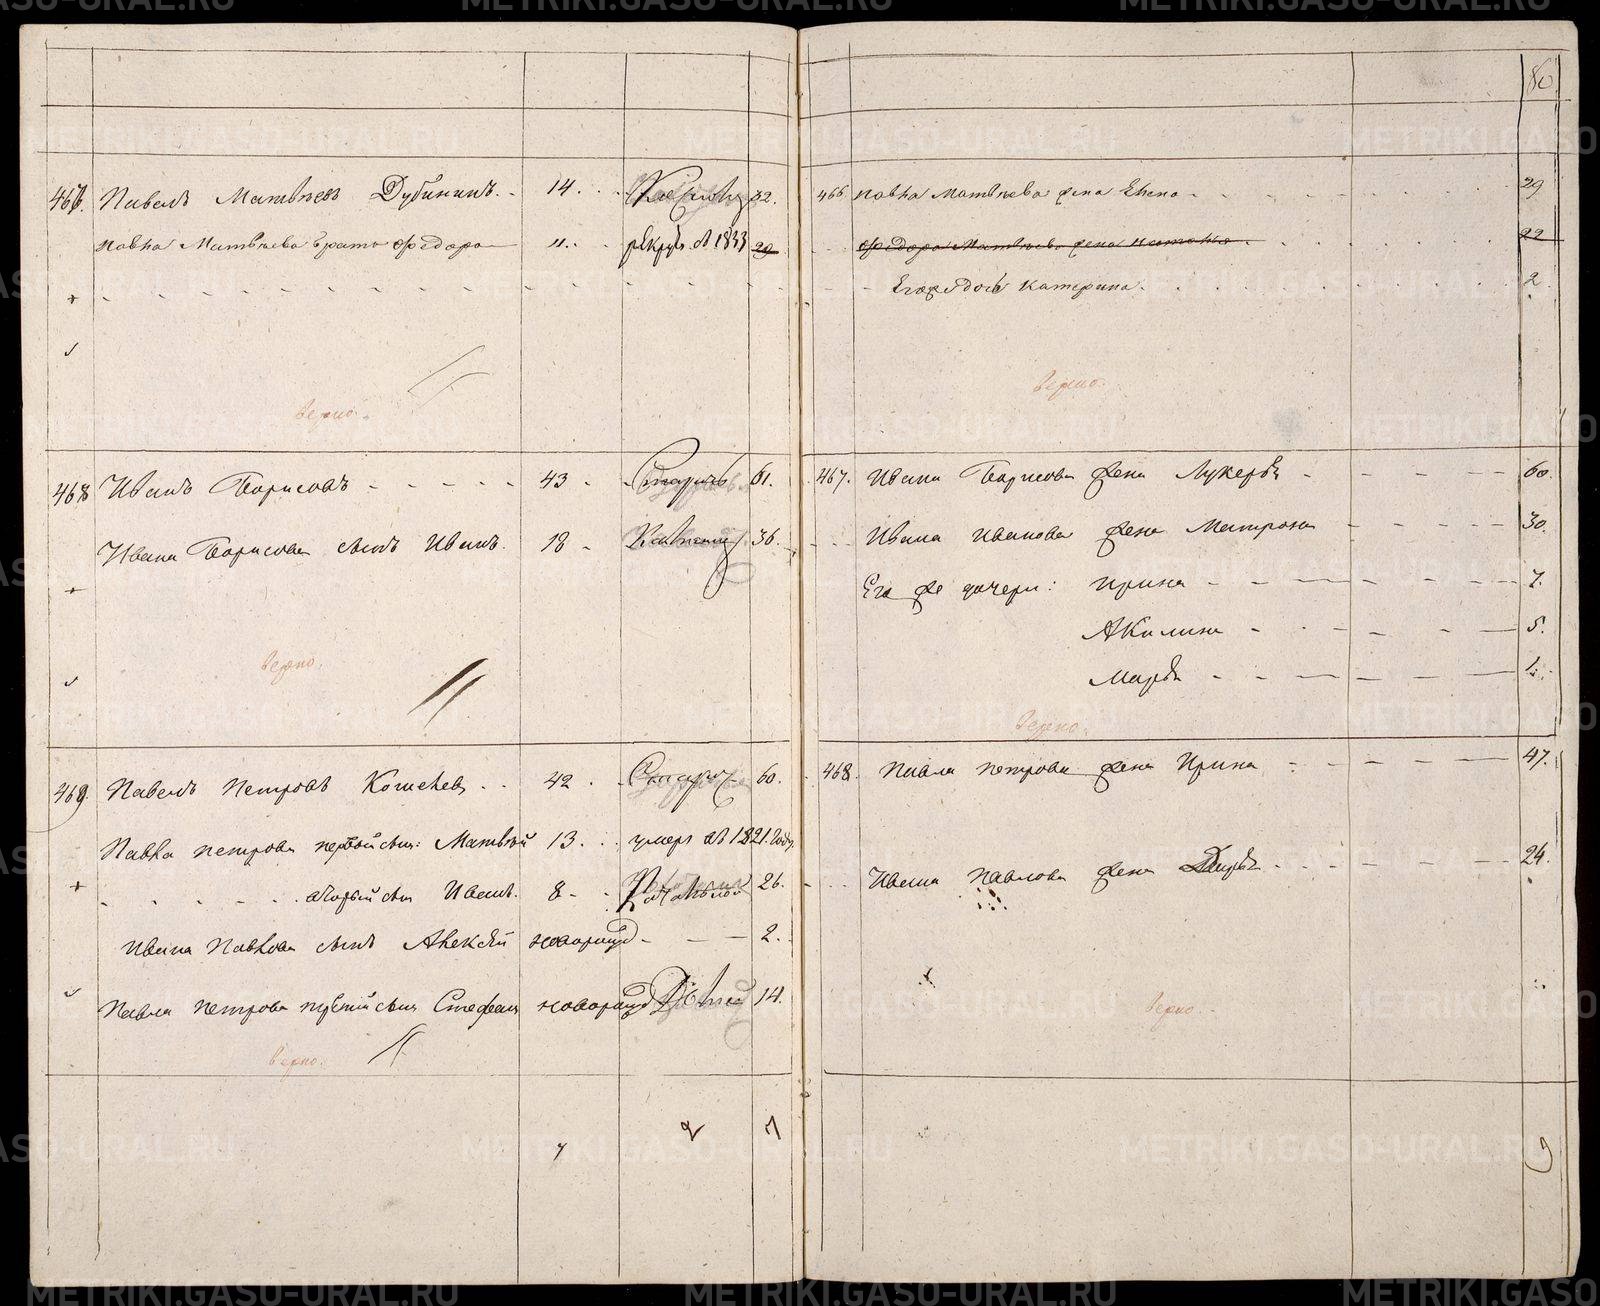 80
466. Павелъ Матвѣевъ Дубининъ. 14. 32.
Павла Матвѣева братъ Федоръ 11. рекрутъ въ 1833 29
верно.
467 Иванъ Борисовъ 43 Старикъ 61.
Ивана Борисова сынъ Иванъ. 18 36.
верно.
468. Павелъ Петровъ Кошелевъ 42 60.
Павла Петрова первой сынъ: Матвѣй 13. умеръ въ 1821. году
второй сынъ Иванъ. 8 Работной 26.
Ивана Павлова сынъ Алексѣй новорожд 2.
Павла Петрова третій сынъ Стефанъ новорожд 14.
верно.
7 2 7
466 Павла Матвѣева жена Елена 29
Федора Матвѣева жена Наталья 22
Его дочь Катерина. 2
верно.
467. Ивана Борисова жена Лукерья 60.
Ивана Иванова жена Матрона 30.
Его же дочери: Ирина 7.
Акилина 5.
Марья 1.
верно.
468. Павла Петрова жена Ирина 47.
Ивана Павлова жена Дарья 24.
верно.
9
METRIKI.GASO-URAL.RU